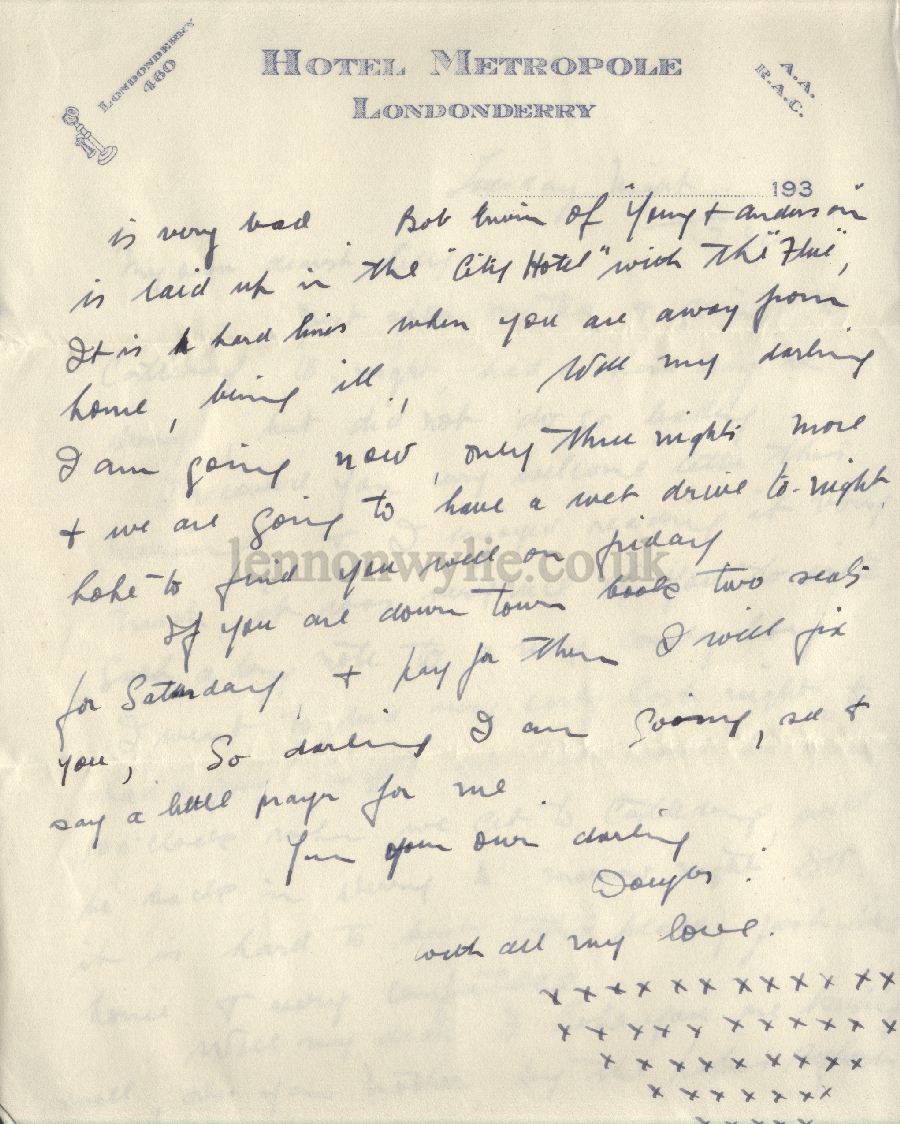 LONDONDERRY
460
HOTEL METROPOLE
LONDONDERRY
A.A.
R.A.C.
193
is very bad. Bob Erwin of "Young & Anderson"
is laid up in the "City Hotel" with the "Flue",
It is hard lines when you are away from
home, being ill, Well my darling
I am going now, only three nights more
& we are going to have a wet drive to-night
hope to find you well on friday
lennonwylie.co.uk
If you are down town book two seats
for Saturday, & pay for them I will fix
you, So darling I am going, so &
say a little prayer for me
Your own darling
Douglas.
with all my love.
x x x x x x x x x x x x x
x x x x x x x x x x x x x
x x x x x x x x x x
x x x x x x x
x x x x x x